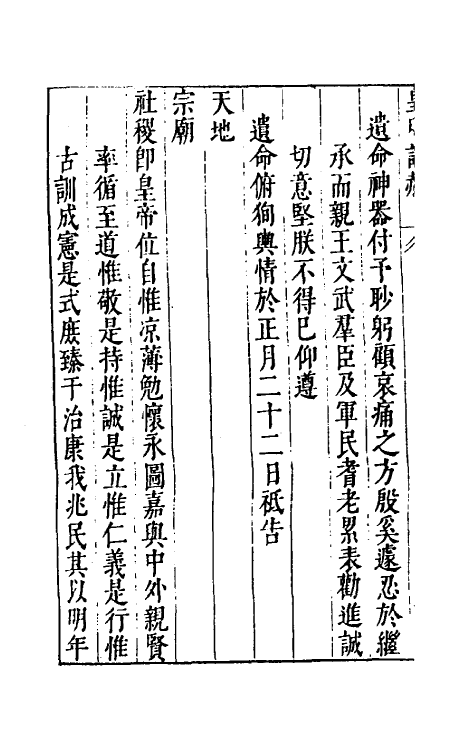 遺命神器付予眇躬顧哀痛之方殷奚遽忍於繼
承而親王文武羣臣及軍民耆老累表勸進誠
切意堅朕不得已仰遵
遺命俯狥輿情於正月二十二日祗告
天地
宗廟
社稷即皇帝位自惟凉薄勉懷永圖嘉與中外親賢
率循至道惟敬是持惟誠是立惟仁義是行惟
古訓成憲是式庶臻于治康我兆民其以明年